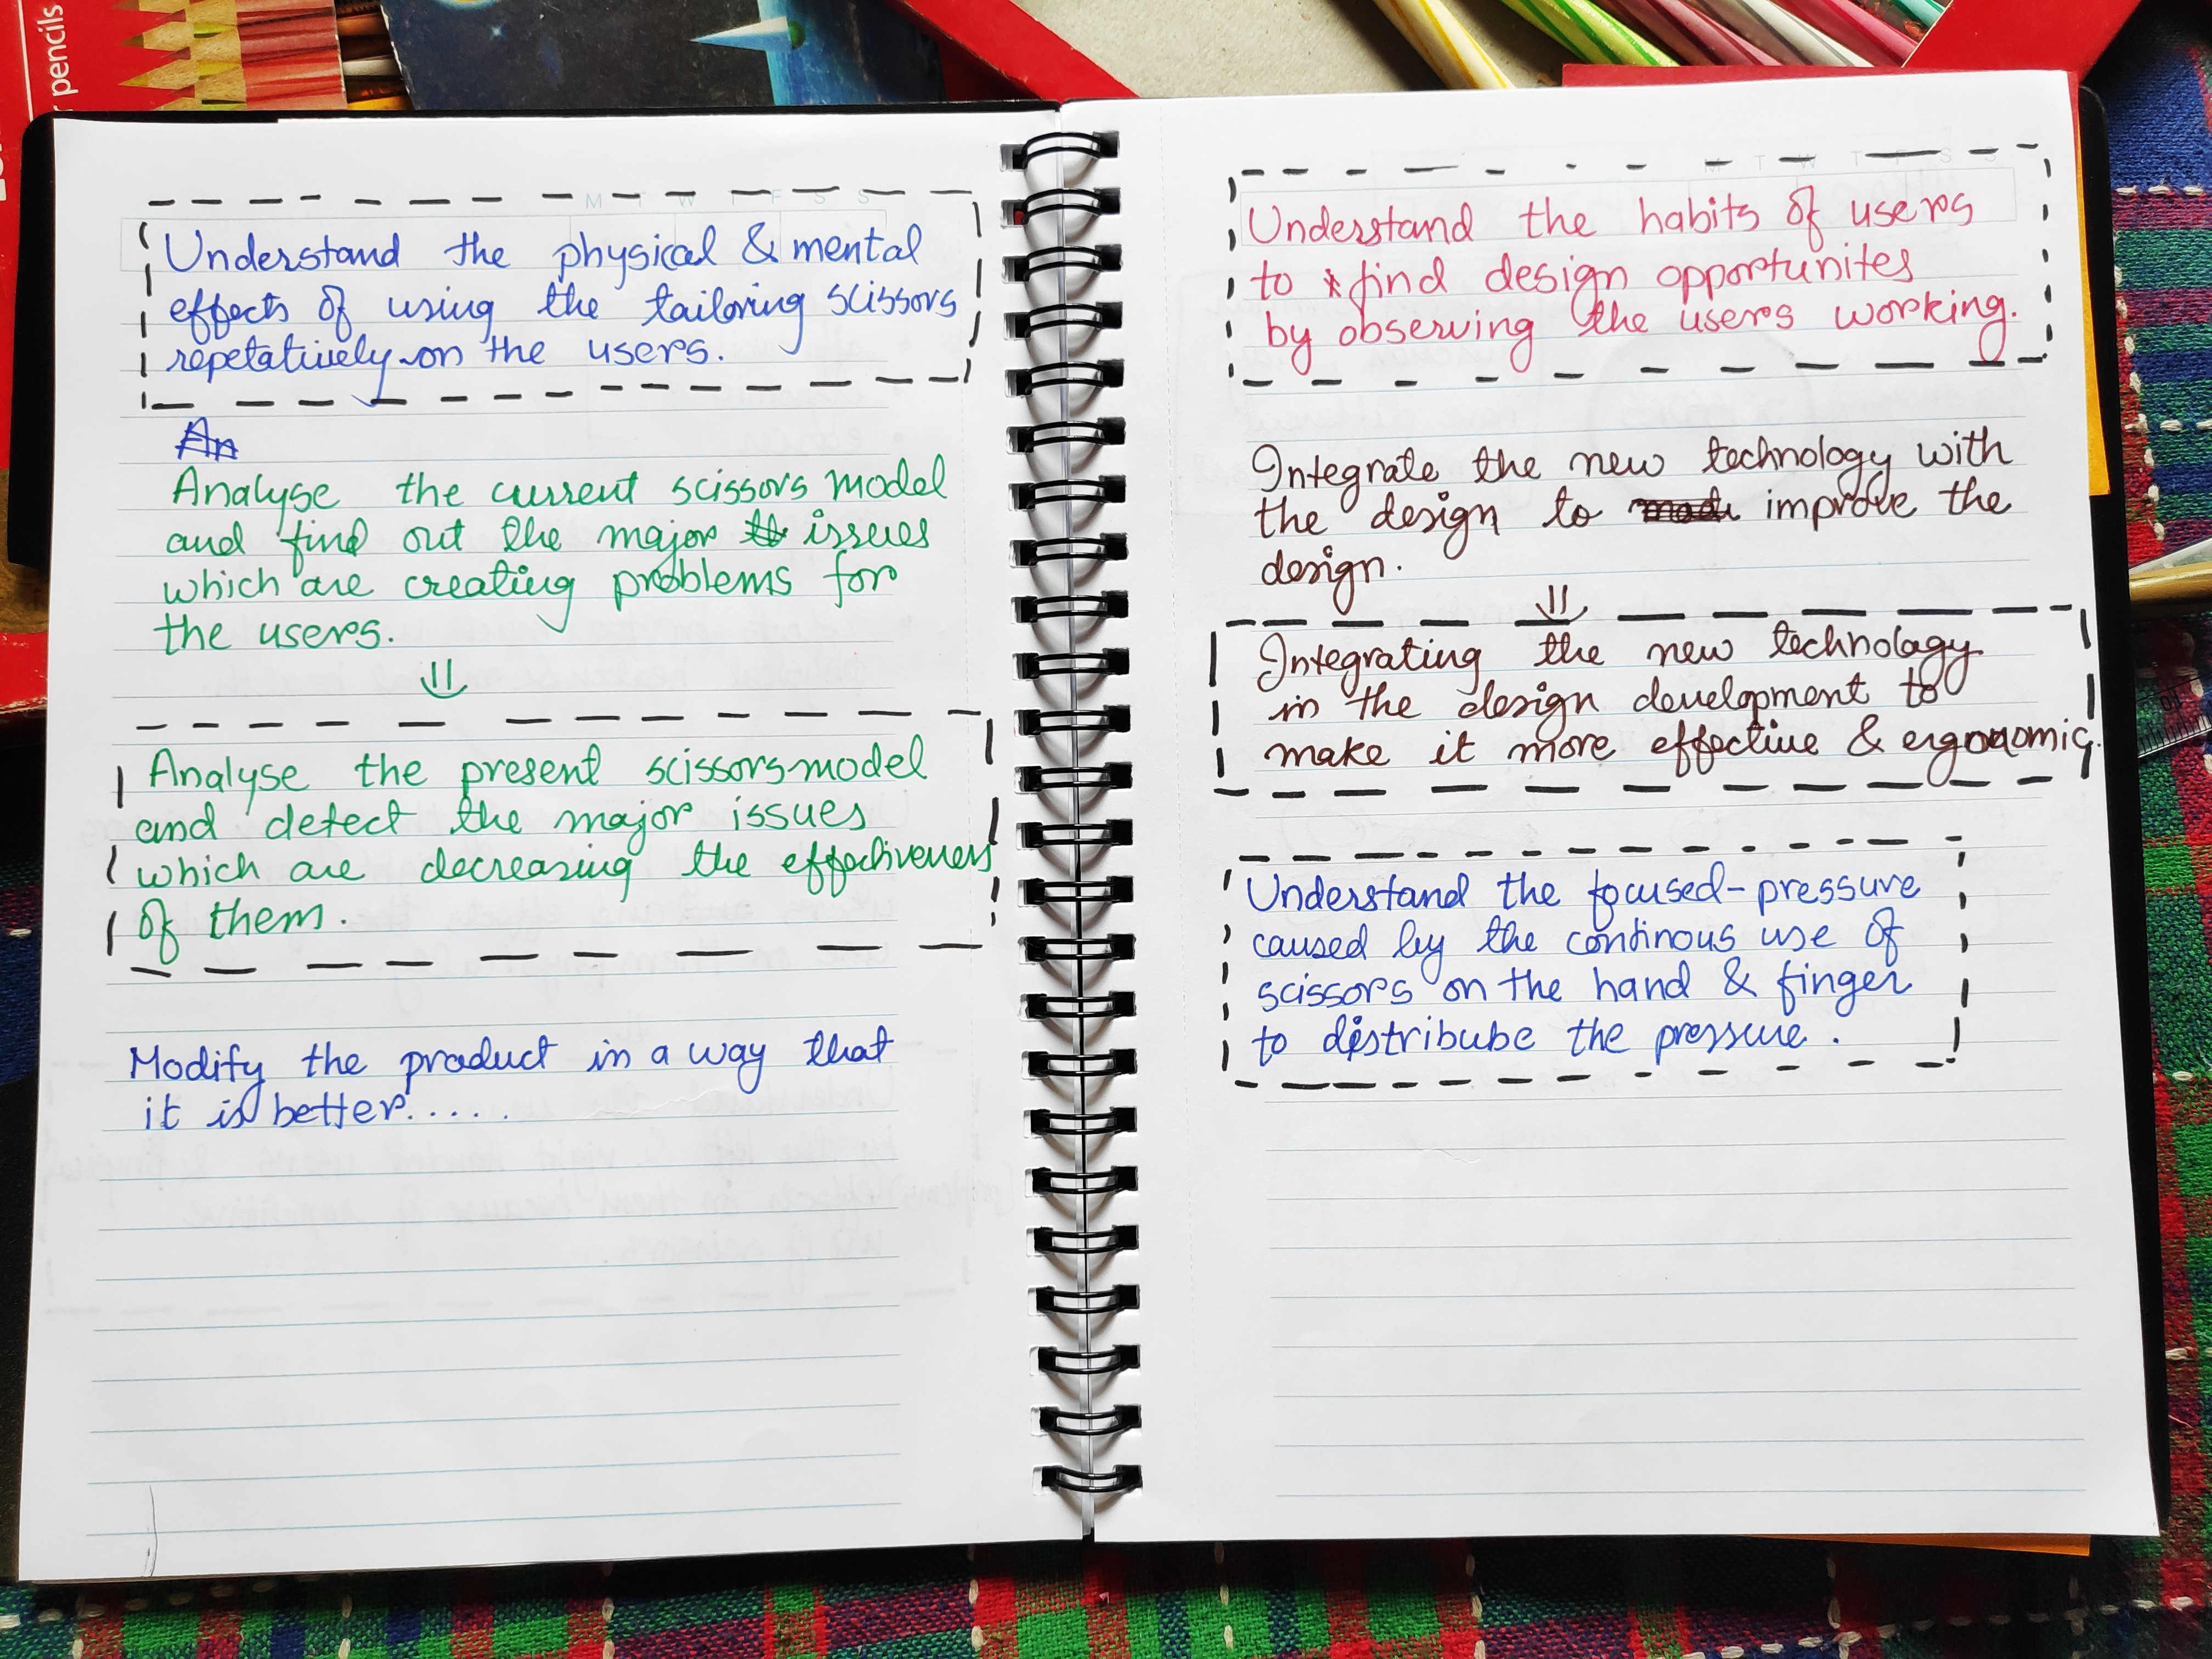 r pencils
M T W T F S S
Understand the physical & mental
effects of using the tailoring scissors
repetatively on the users.
An
Analyse the current scissors model
and find out the major issues
which are creating problems for
the users.
Analyse the present scissors model
and detect the major issues
which are decreasing the effectiveness
of them.
Modify the product in a way that
it is better.....
M T W T F S S
Understand the habits of users
to find design opportunites
by observing the users working.
Integrate the new technology with
the design to improve the
design.
Integrating the new technology
in the design development to
make it more effective & ergonomic.
Understand the focused-pressure
caused by the continous use of
scissors on the hand & finger
to distribube the pressure.